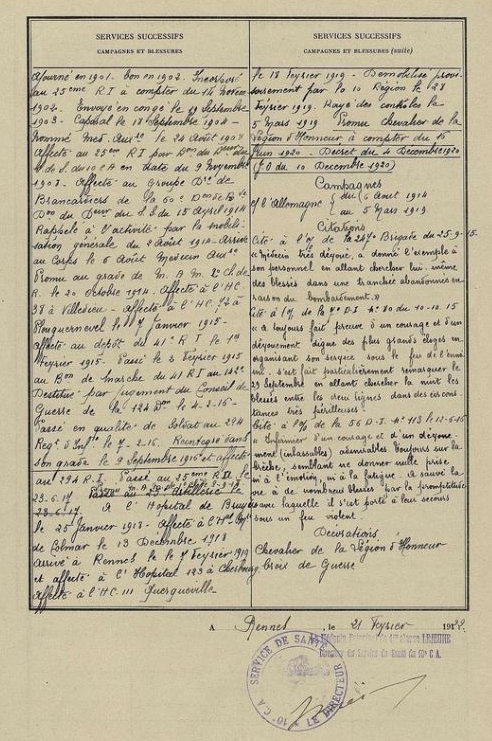 SERVICES SUCCESSIFS
CAMPAGNES ET BLESSURES
Ajourné en 1901. Bon en 1902. Incorporé
au 25eme R I à compter du 14 Novem
1902. Envoyé en congé le 19 Septembre
1903. Caporal le 18 Septembre 1904
Nommé Med. Auxre le 24 Août 1908
Affecté au 25eme R I par Don du
S. de S. du 10e C A en date du 9 Novembre
1908. Affecté au Groupe Dre de
Brancardiers de la 60e Don de Rve
Don du Deur du S. S. du 15 Avril 1914
Rappelé à l'activité par la mobili-
sation générale du 2 Août 1914. Arrivé
au Corps le 6 Août Médecin Auxre
Promu au grade de M. A. M. 2e Cl. de
R. le 20 Octobre 1914. Affecté à l'H.C.
38 à Villedieu - affecté à l'H.C. 72 à
Plouguernevel le 7 Janvier 1915 -
affecté au dépôt du 41e R I le 1er
Février 1915. Passé le 3 Février 1915
au Bon de marche du 41 RI au
Destitué par jugement du Conseil de
Guerre de la 124 Don le 4-2-16-
Passé en qualité de Soldat au 294
Regt d'Inf. le 7-2-16. Réintégré dans
son grade le 9 Septembre 1916 et affecté
au 294 R.I. Passé au 25eme R I le
23.6.17
à l'Hôpital de
le 25 Janvier 1918 - Affecté à l'H
de Colmar le 13 Décembre 1918
Arrivé à Rennes le 7 Février 1919
et affecté à l'Hôpital 123 à Cherbourg
Affecté à l'H.C. 111 Querqueville
SERVICES SUCCESSIFS
CAMPAGNES ET BLESSURES (suite)
le 18 Février 1919 - Démobilisé provi-
soirement par la 10 Région le 28
Février 1919. Rayé des contrôles le
5 Mars 1919 Promu Chevalier de la
Légion d'Honneur à compter du 16
Juin 1920 - Décret du 4 Décembre 1920
(J.O du 10 Décembre 1920)
Campagnes
c/ l'Allemagne { du 6 Août 1914
au 5 Mars 1919
Citations
Cité à l'O/ de la 247e Brigate du 25-9-15.
"Médecin très dévoué, a donné l'exemple à
son personnel en allant chercher lui-même
des blessés dans une tranchée abandonnée en
raison du bombardement."
Cité à l'O/ de la D I No 80 du 10-10-15
"a toujours fait preuve d'un courage et d'un
dévouement digne des plus grands éloges en
organisant son service sous le feu de l'enne-
mi. s'est fait particulièrement remarquer le
29 Septembre en allant chercher la nuit les
blessés entre les deux lignes dans des circons-
tances très périlleuses."
Cité à l'O/ de la 56 D.I. No 113 le 12-6-16
"Infirmier d'un courage et d'un dévoue-
ment (inlassables) admirables. Toujours sur la
brèche, semblant ne donner nulle prise
ni à l'émotion, ni à la fatigue. A sauvé la
vie à de nombreux blessés par la promptitude
avec laquelle il s'est porté à leur secours
sous un feu violent.
Décorations
Chevalier de la Légion d'Honneur
Croix de Guerre
A Rennes, le 21 Février 1922.
SERVICE DE SANTÉ
LE DIRECTEUR
10e C.A
Directeur du Service de Santé du 10e C.A.